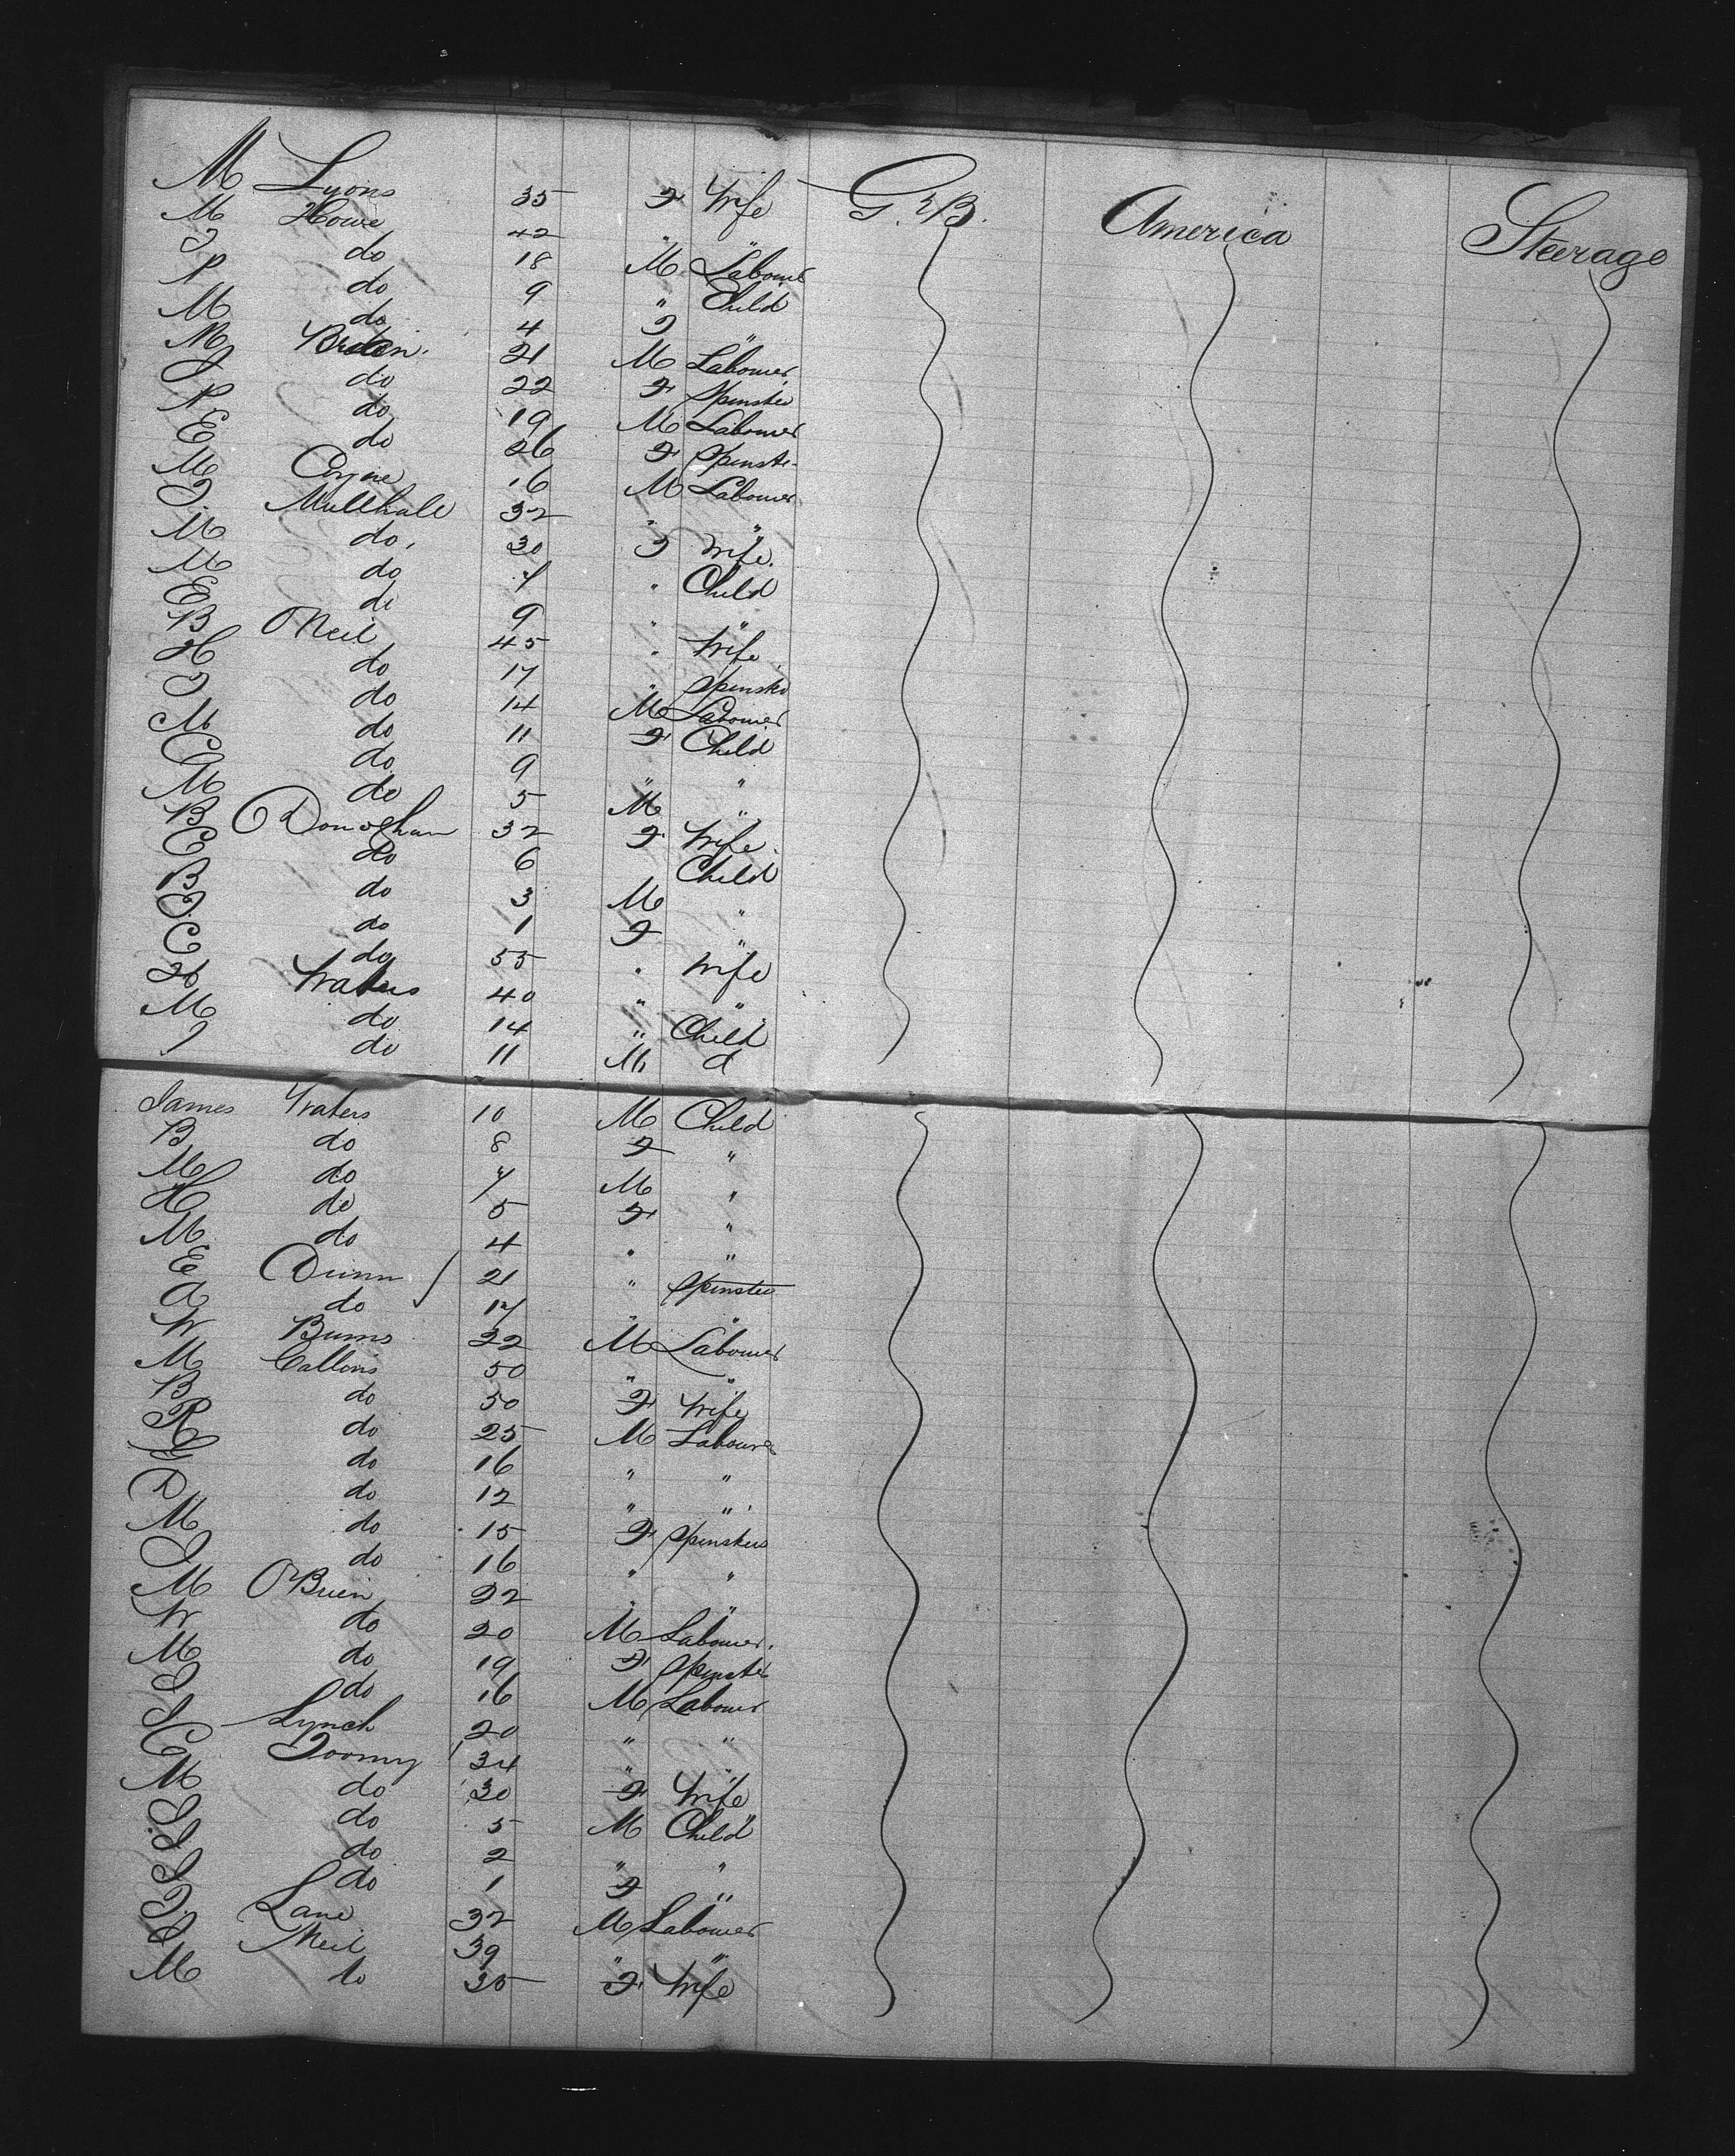 M Lyons 35 F Wife G.B. America Steerage
M Howe 42 " "
J do 18 M Labourer
P do 9 " Child
M do 4 F "
M Breten 21 M Labourer
J do 22 F Spinster
P do 19 M Labourer
E do 26 F Spinster
M Coyne 16 M Labourer
J Mullhall 32 " "
M do 30 F Wife
M do 7 " Child
E do 9 " "
B ONeil 45 " Wife
H do 17 " Spinster
J do 14 M Labourer
M do 11 F Child
C do 9 " "
M do 5 M "
B ODonoghue 32 F Wife
E do 6 Child
B do 3 M "
J do 1 F "
C do 55 " Wife
H Waters 40 " "
M do 14 " Child
J do 11 M d
James Waters 10 M Child
B do 8 F "
M do 7 M "
H do 5 F "
M do 4 " "
E Dunn 21 " Spinster
A do 17 " "
W Burns 22 M Labourer
M Callons 50 " "
B do 50 F Wife
R do 25 M Labourer
G do 16 " "
D do 12 " "
M do 15 F Spinsters
J do 16 " "
M OBrien 22 " "
W do 20 M Labourer
M do 19 F Spinster
J do 16 M Labourer
J Lynch 20 " "
C Toomy 34 " "
M do 30 F Wife
J do 5 M Child
J do 2 " "
J do 1 F "
J Lane 32 M Labourer
J Neil 39 " "
M do 35 F Wife